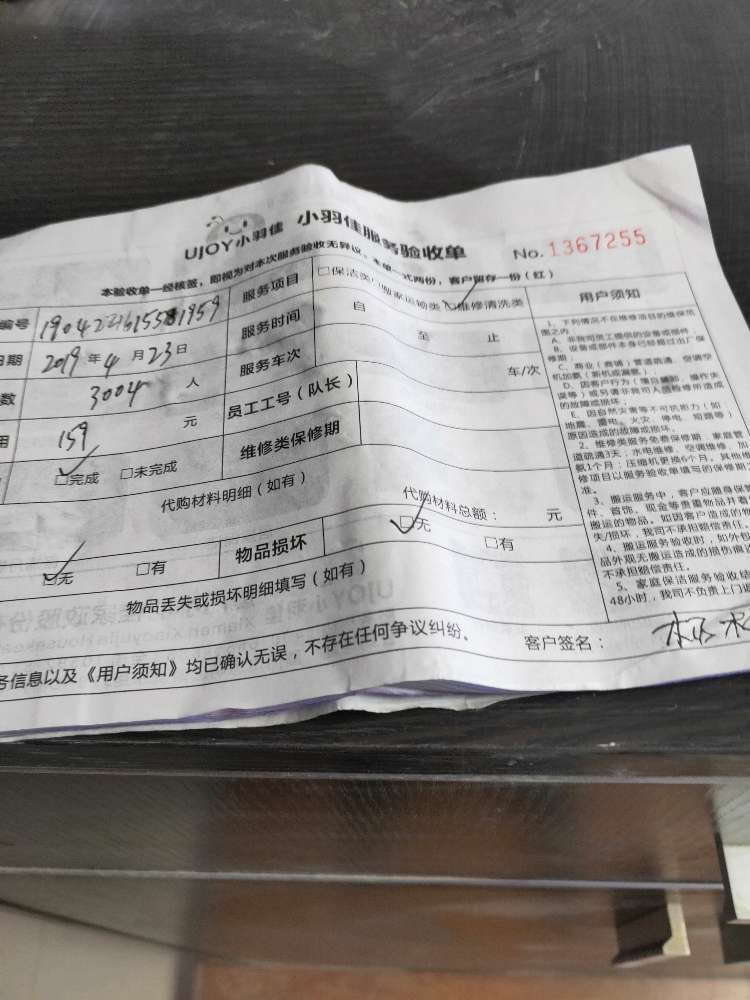 UJOY小羽佳 小羽佳服务验收单 No. 1367255
本验收单一经核签，即视为对本次服务验收无异议，本单一式两份，客户留存一份（红）
编号 服务项目 □保洁类 □搬家运输类 □维修清洗类 用户须知
日期 2019 年 4 月 23 日 服务时间 自 至 止
数 3004 人 服务车次 车/次
用 159 元 员工工号（队长）
□完成 □未完成 维修类保修期
代购材料明细（如有） 代购材料总额： 元
□无 □有 物品损坏 □无 □有
物品丢失或损坏明细填写（如有）
务信息以及《用户须知》均已确认无误，不存在任何争议纠纷。 客户签名：
1、下列情况不在维修项目的维保范
围之内
A、非我司员工提供的设备或部件
B、设备或部件本身已经超过出厂保
修期；
C、商业（商铺）管道疏通、空调空
机加氨（新机或漏氨）；
D、因客户行为（擅自 、操作失
误等）或另请非我司人员检修所造成
的故障或损坏。
E、因自然灾害等不可抗力（如
地震、雷电、火灾、停电、短路等）
原因造成的故障或损坏。
2、维修类服务免费保修期：家庭管
道疏通3天；水电维修、空调维修、加
氨1个月；压缩机更换6个月，其他维
修项目以服务验收单填写的保修期
准。
3、搬运服务中，客户应随身保管
件、首饰、现金等贵重物品并看
搬运的物品。如因客户造成的
失/损坏，我司不承担赔偿责任。
4、搬运服务验收时，如外包
品外观无搬运造成的擅伤痕
不承担赔偿责任。
5、家庭保洁服务验收结
48小时，我司不负责上门返